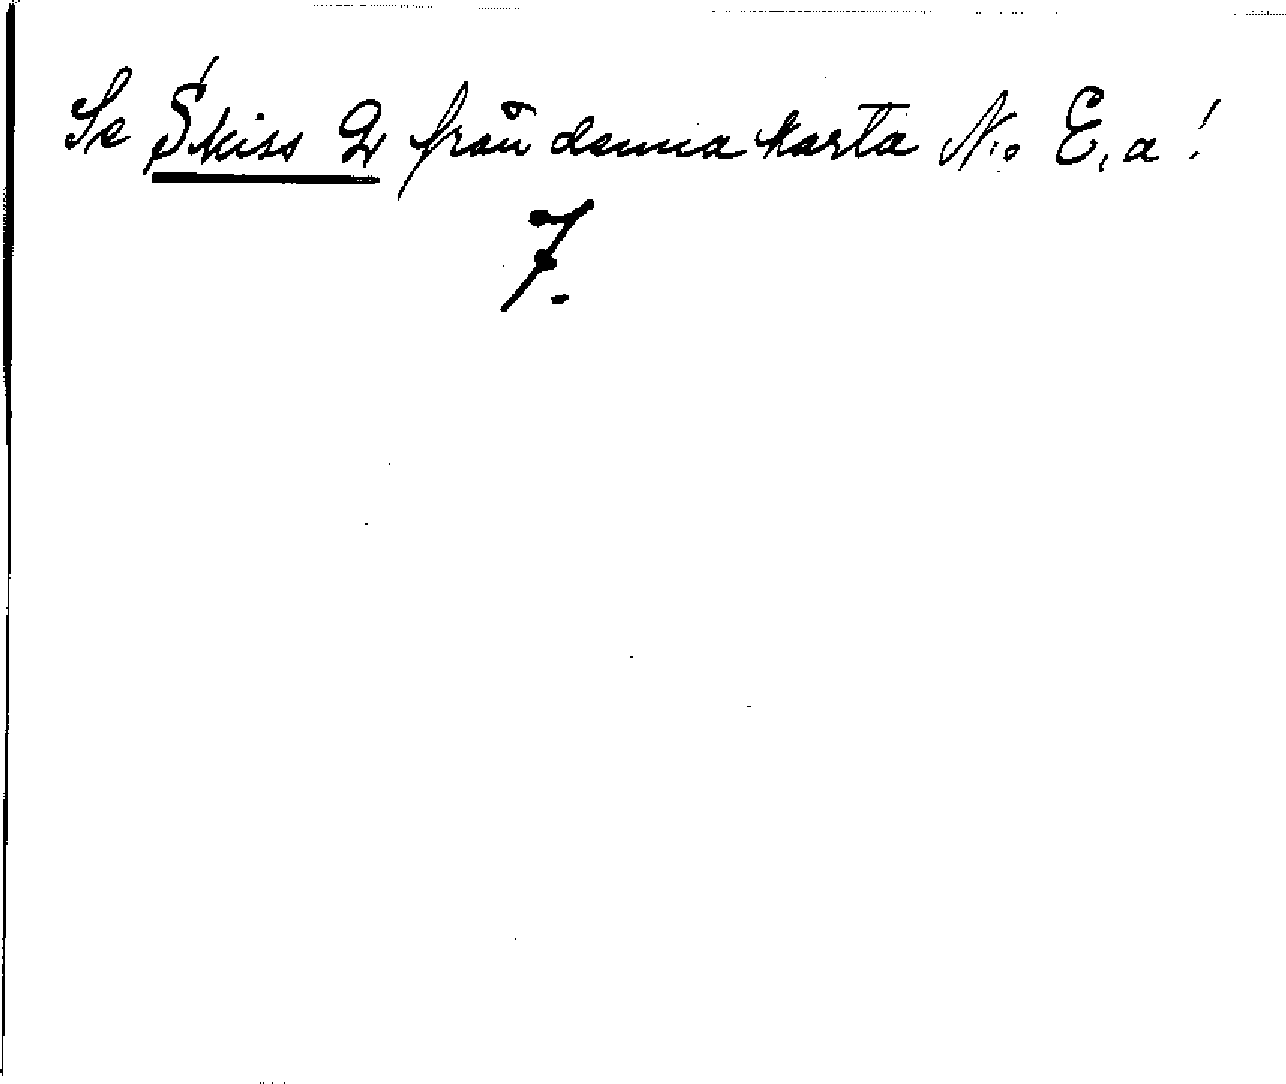 Se Skiss 2 från denna karta N:o E, a!
7.